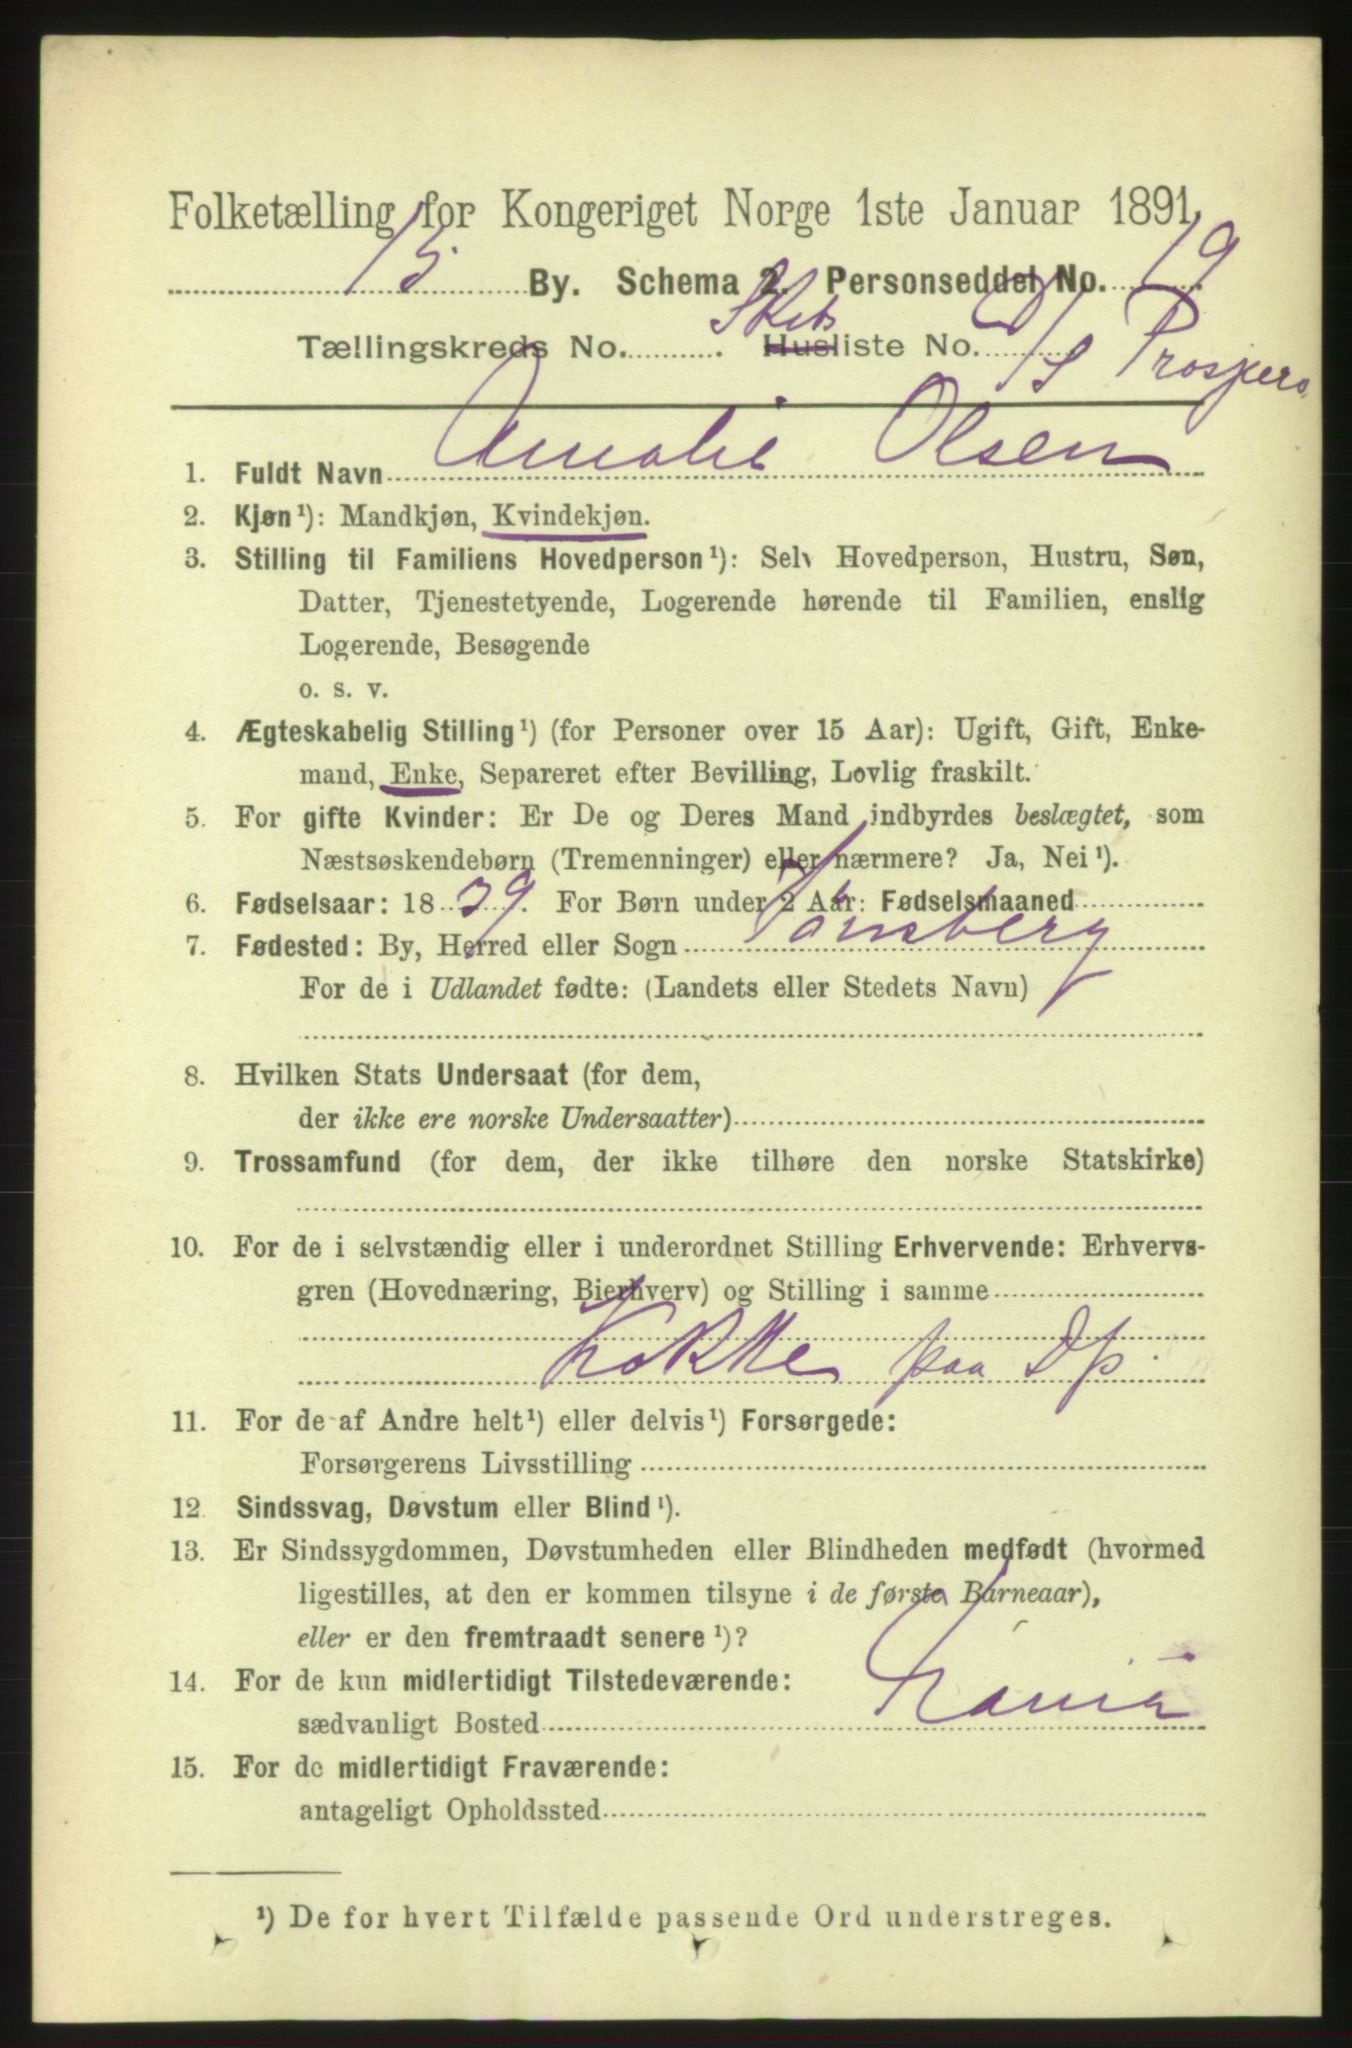 Folketælling for Kongeriget Norge 1ste Januar 1891.
15 By. Schema 2. Personseddel No. 19
Tællingskreds No. . Skibsliste No. D/S Prospero
1. Fuldt Navn Amalie Olsen
2. Kjøn¹): Mandkjøn, Kvindekjøn.
3. Stilling til Familiens Hovedperson¹): Selv Hovedperson, Hustru, Søn,
Datter, Tjenestetyende, Logerende hørende til Familien, enslig
Logerende, Besøgende
o. s. v.
4. Ægteskabelig Stilling¹) (for Personer over 15 Aar): Ugift, Gift, Enke-
mand, Enke, Separeret efter Bevilling, Lovlig fraskilt.
5. For gifte Kvinder: Er De og Deres Mand indbyrdes beslægtet, som
Næstsøskendebørn (Tremenninger) eller nærmere? Ja, Nei¹).
6. Fødselsaar: 1839. For Børn under 2 Aar: Fødselsmaaned
7. Fødested: By, Herred eller Sogn Tønsberg
For de i Udlandet fødte: (Landets eller Stedets Navn)
8. Hvilken Stats Undersaat (for dem,
der ikke ere norske Undersaatter)
9. Trossamfund (for dem, der ikke tilhøre den norske Statskirke)
10. For de i selvstændig eller i underordnet Stilling Erhvervende: Erhvervs-
gren (Hovednæring, Bierhverv) og Stilling i samme
Kokke paa Dp.
11. For de af Andre helt¹) eller delvis¹) Forsørgede:
Forsørgerens Livsstilling
12. Sindssvag, Døvstum eller Blind¹).
13. Er Sindssygdommen, Døvstumheden eller Blindheden medfødt (hvormed
ligestilles, at den er kommen tilsyne i de første Barneaar),
eller er den fremtraadt senere¹)?
14. For de kun midlertidigt Tilstedeværende:
sædvanligt Bosted
15. For de midlertidigt Fraværende:
antageligt Opholdssted
¹) De for hvert Tilfælde passende Ord understreges.